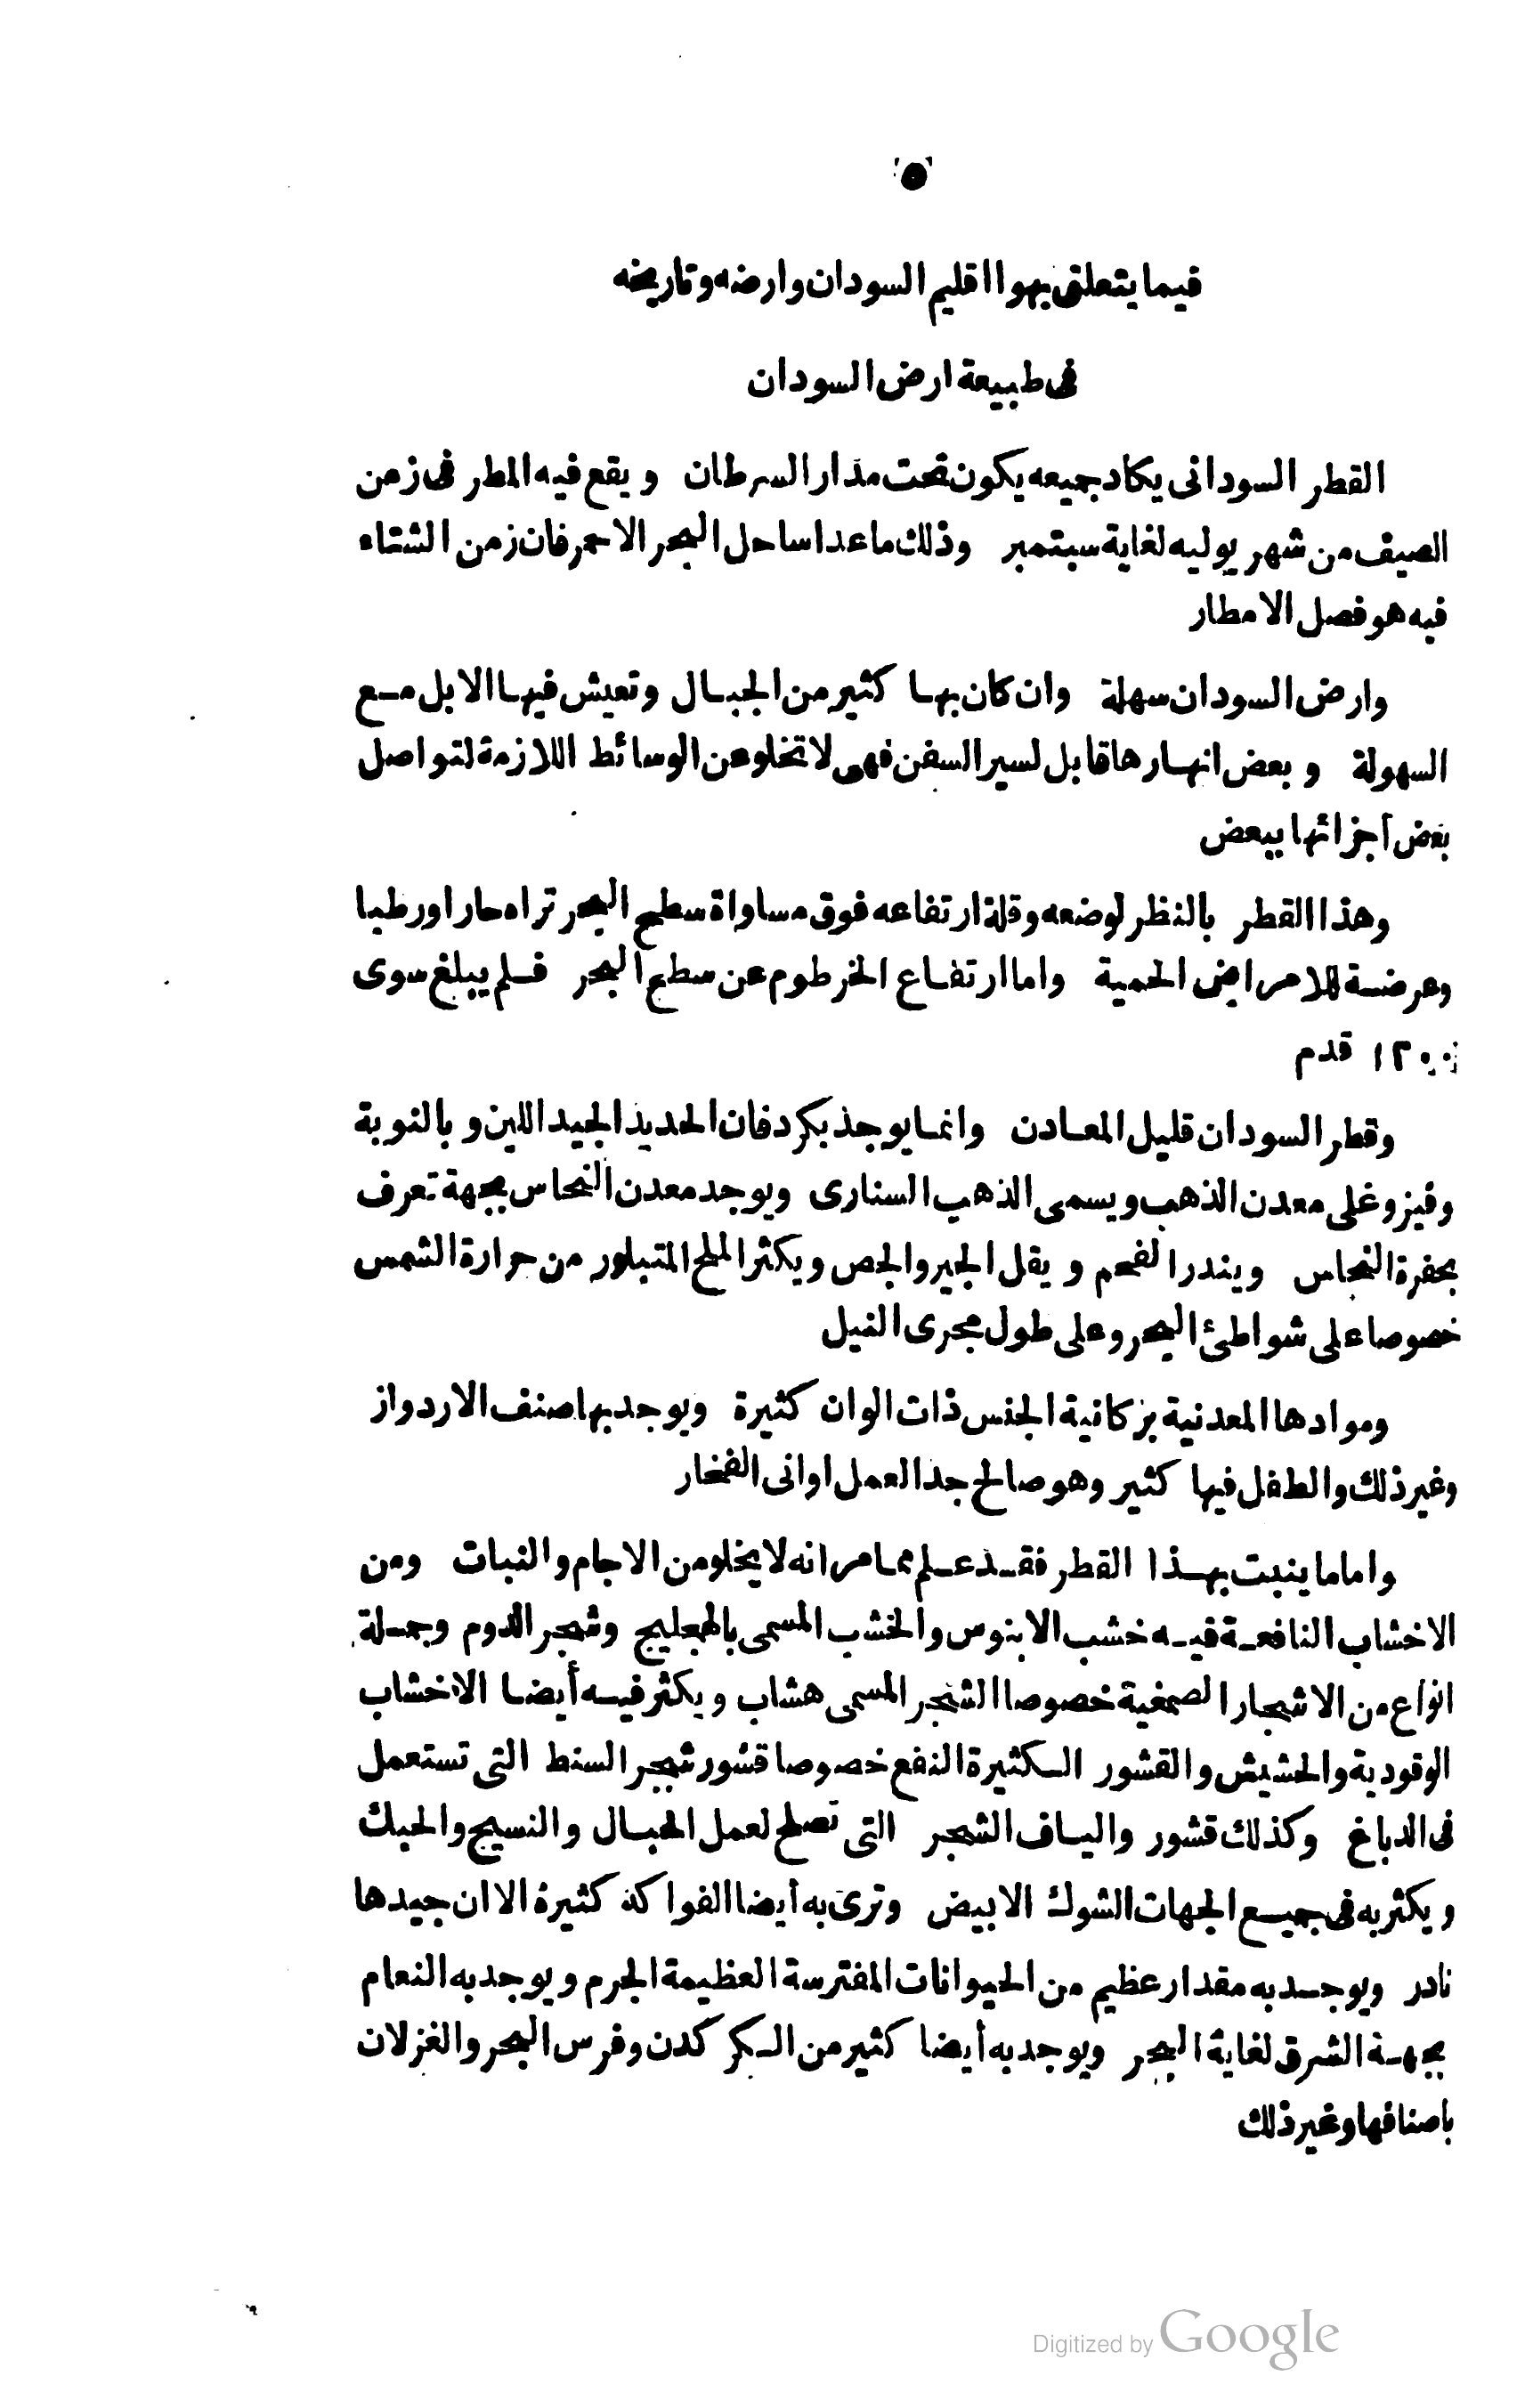 ٥
فيما يتعلق بهوا اقليم السودان وارضه وتاريخه
فى طبيعة ارض السودان
القطر السودانى يكاد جميعه يكون تحت مدار السرطان ويقع فيه المطر فى زمن
الصيف من شهر يوليه لغاية سبتمبر وذلك ماعدا ساحل البحر الاحمر فان زمن الشتاء
فيه هو فصل الامطار
وارض السودان سهلة وان كان بها كثير من الجبال وتعيش فيها الابل مع
السهولة وبعض انهارها قابل لسير السفن فهى لا تخلو عن الوسائط اللازمة لتواصل
بعض اجزائها ببعض
وهذا القطر بالنظر لوضعه وقلة ارتفاعه فوق مساواة سطح البحر تراه حارا ورطبا
وعرضة للامراض الحمية واما ارتفاع الخرطوم عن سطح البحر فلم يبلغ سوى
١٢٠٠ قدم
وقطر السودان قليل المعادن وانما يوجد بكردفان الحديد الجيد اللين وبالنوبة
وفيزوغلى معدن الذهب ويسمى الذهب السنارى ويوجد معدن النحاس بجهة تعرف
بحفرة النحاس ويندر الفحم ويقل الجير والجص ويكثر الملح المتبلور من حرارة الشمس
خصوصا على شواطئ البحر وعلى طول مجرى النيل
وموادها المعدنية بركانية الجنس ذات الوان كثيرة ويوجد بها صنف الاردواز
وغير ذلك والطفل فيها كثير وهو صالح جدا لعمل اوانى الفخار
واما ما ينبت بهذا القطر فقد علم مما مر انه لا يخلو من الاجام والنبات ومن
الاخشاب النافعة فيه خشب الابنوس والخشب المسمى بالهجليج وشجر الدوم وجملة
انواع من الاشجار الصمغية خصوصا الشجر المسمى هشاب ويكثر فيه أيضا الاخشاب
الوقودية والحشيش والقشور الكثيرة النفع خصوصا قشور شجر السنط التى تستعمل
فى الدباغ وكذلك قشور والياف الشجر التى تصلح لعمل الحبال والنسيج والحبك
ويكثر به فى جميع الجهات الشوك الابيض وترى به أيضا الفواكه كثيرة الا ان جيدها
نادر ويوجد به مقدار عظيم من الحيوانات المفترسة العظيمة الجرم ويوجد به النعام
بجهة الشرق لغاية البحر ويوجد به أيضا كثير من الكركدن وفرس البحر والغزلان
باصنافها وغير ذلك
Digitized by Google